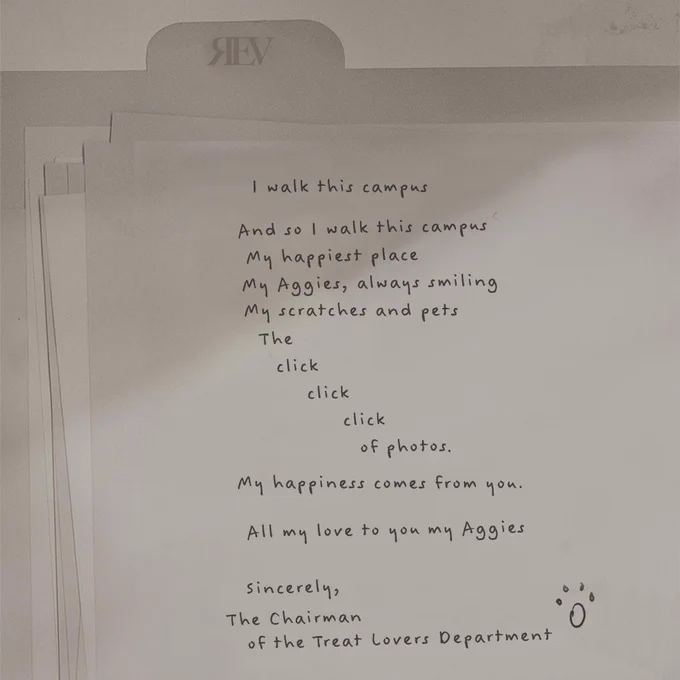 ЯEV
I walk this campus
And so I walk this campus
My happiest place
My Aggies, always smiling
My scratches and pets
The
click
click
click
of photos.
My happiness comes from you.
All my love to you my Aggies
Sincerely,
The Chairman
of the Treat Lovers Department